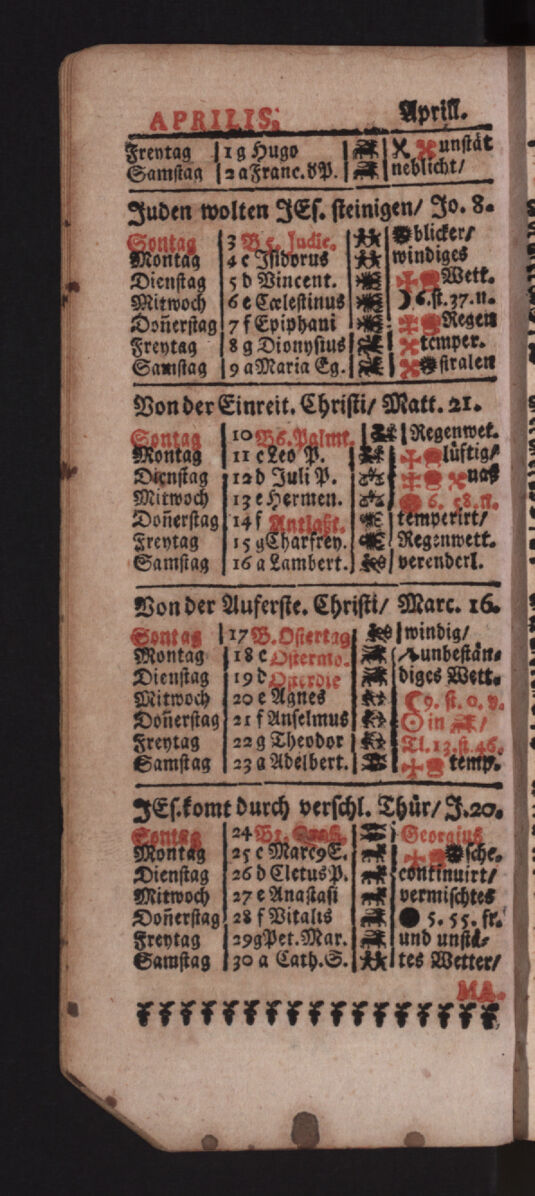 APRILIS. Aprill.
Freytag 1 g Hugo unstät
Samstag 2 a Franc. d P. neblicht/
Juden wolten JEs. steinigen/ Jo. 8.
Sontag 3 B 5. Judic. blicker/
Montag 4 c Isidorus windiges
Dienstag 5 d Vincent. Wett.
Mitwoch 6 e Cœlestinus ☽ 6. st. 37. n.
Don̄erstag 7 f Epiphani Regen
Freytag 8 g Dionysius temper.
Samstag 9 a Maria Eg. stralen
Von der Einreit. Christi/ Matt. 21.
Sontag 10 B 6. Palmt. Regenwet.
Montag 11 c Leo P. lüftig/
Dienstag 12 d Juli P. naß
Mitwoch 13 e Hermen. 6. 58. n.
Don̄erstag 14 f Antlaßt. temperirt/
Freytag 15 g Charfrey. Regenwett.
Samstag 16 a Lambert. verenderl.
Von der Auferste. Christi/ Marc. 16.
Sontag 17 B. Ostertag windig/
Montag 18 c Ostermo. unbestän=
Dienstag 19 d Osterdie diges Wett.
Mitwoch 20 e Agnes ☾ 9. st. 0. v.
Don̄erstag 21 f Anselmus ☉ in /
Freytag 22 g Theodor Tl. 13. st. 46.
Samstag 23 a Adelbert. temp.
JEs. komt durch verschl. Thür/ J. 20.
Sontag 24 B 1. Georgius
Montag 25 c Marc9 E. sche.
Dienstag 26 d Cletus P. continuirt/
Mitwoch 27 e Anastasi vermischtes
Don̄erstag 28 f Vitalis ● 5. 55. fr.
Freytag 29 g Pet. Mar. und unstä=
Samstag 30 a Cath. S. tes Wetter/
MA.